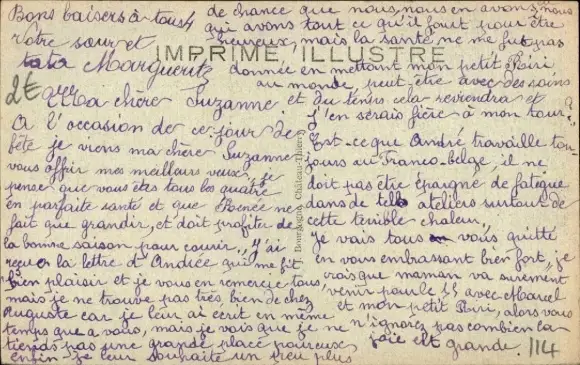 Ma chère Suzanne
A l'occasion de ce jour de
fête je viens ma chère Suzanne
vous offrir mes meilleurs veux, je
pense que vous êtes tous les quatre
en parfaite santé et que Renée ne
fait que grandir, et doit profiter de
la bonne saison pour courir, j'ai
reçu la lettre d'Andrée qui me fit
bien plaisir et je vous en remercie tous,
mais je ne trouve pas très bien de chez
Auguste car je leur ai écrit en même
temps que a vous, mais je vois que je ne
tiends pas une grande place
enfin je leur souhaite un peu plus
de chance que nous, nous en avons, nous
qui avons tout ce qu'il faut pour être
heureux, mais la santé ne me fut pas
donnée en mettant mon petit Riri
au monde peut être avec des soins
et du temps cela reviendra et
j'en serais fière à mon tour
Est-ce que André travaille tou
jours au Franco-Belge, il ne
doit pas être épargné de fatigue
dans de tels ateliers surtout de
cette terrible chaleur,
je vais tous vous quitté
en vous embrassant bien fort, je
crois que maman va surement
venir pour le 15 avec Marcel
et mon petit Riri, alors vous
n'ignorez pas combien la
joie est grande.
Bons baisers à tous 4
Votre sœur et
tata Marguerite
2€
IMPRIMÉ ILLUSTRÉ
J. Bourgogne, Château-Thierry
114